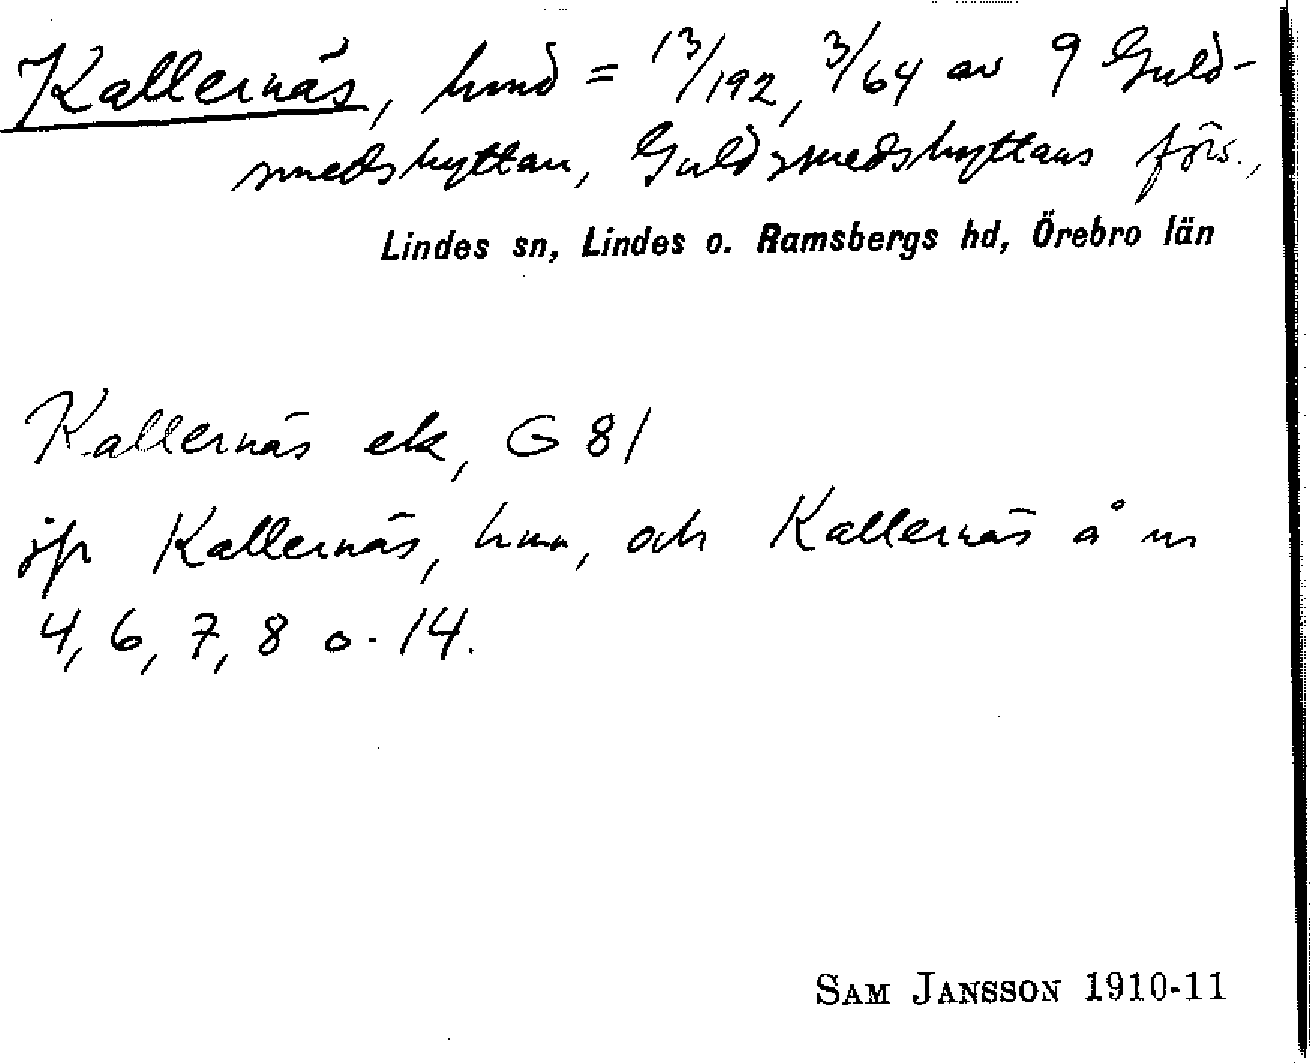 Kallernäs, hmd = 13/192, 3/64 av 9 Guld-
smedshyttan, Guldsmedshyttans förs.,
Lindes sn, Lindes o. Ramsbergs hd, Örebro län
Kallernäs ek, G 81
jfr Kallernäs, hmn, och Kallernäs å nr
4, 6, 7, 8 o. 14.
SAM JANSSON 1910-11